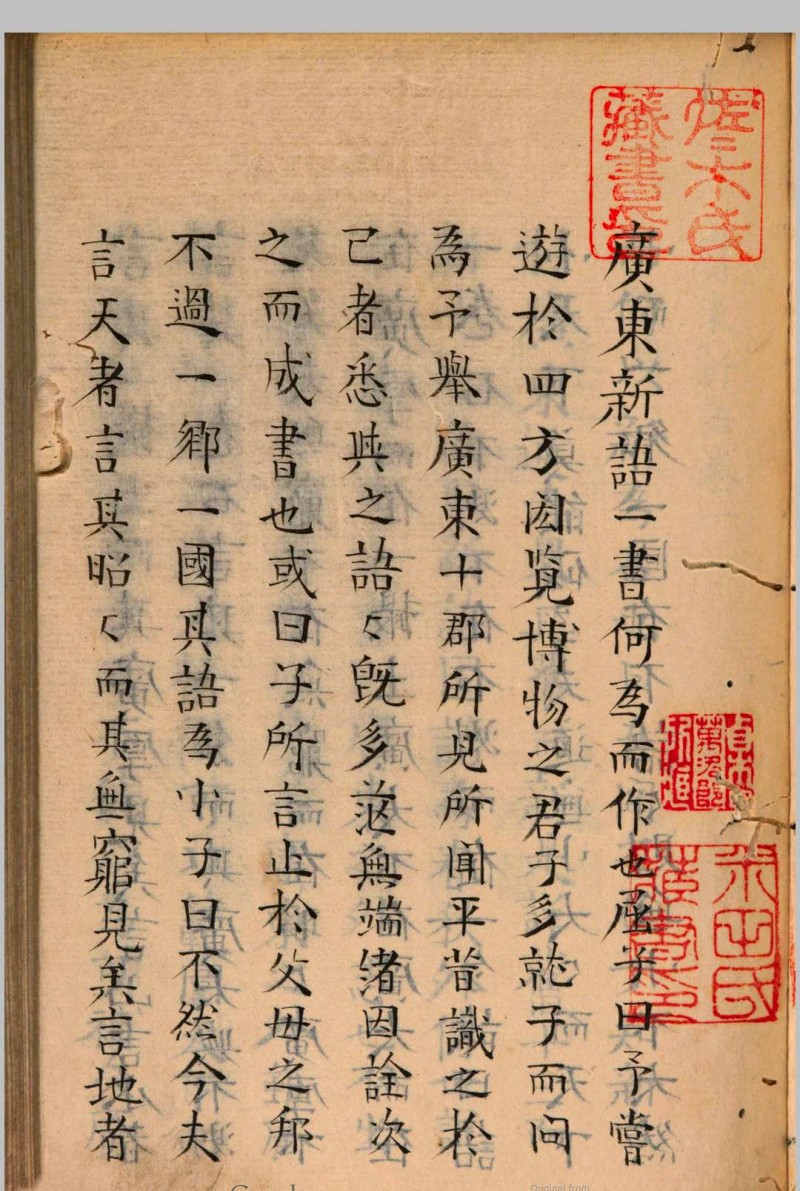 廣東新語一書何為而作也屈子曰予嘗
遊於四方因覽博物之君子多就予而問
為予舉廣東十郡所見所聞平昔識之於
己者悉與之語〻既多茫無端緒因詮次
之而成書也或曰子所言止於父母之邦
不過一鄉一國其語為小子曰不然今夫
言天者言其昭〻而其無窮見矣言地者
佐〻木氏
藏書印
米田氏
藏書印
Original from